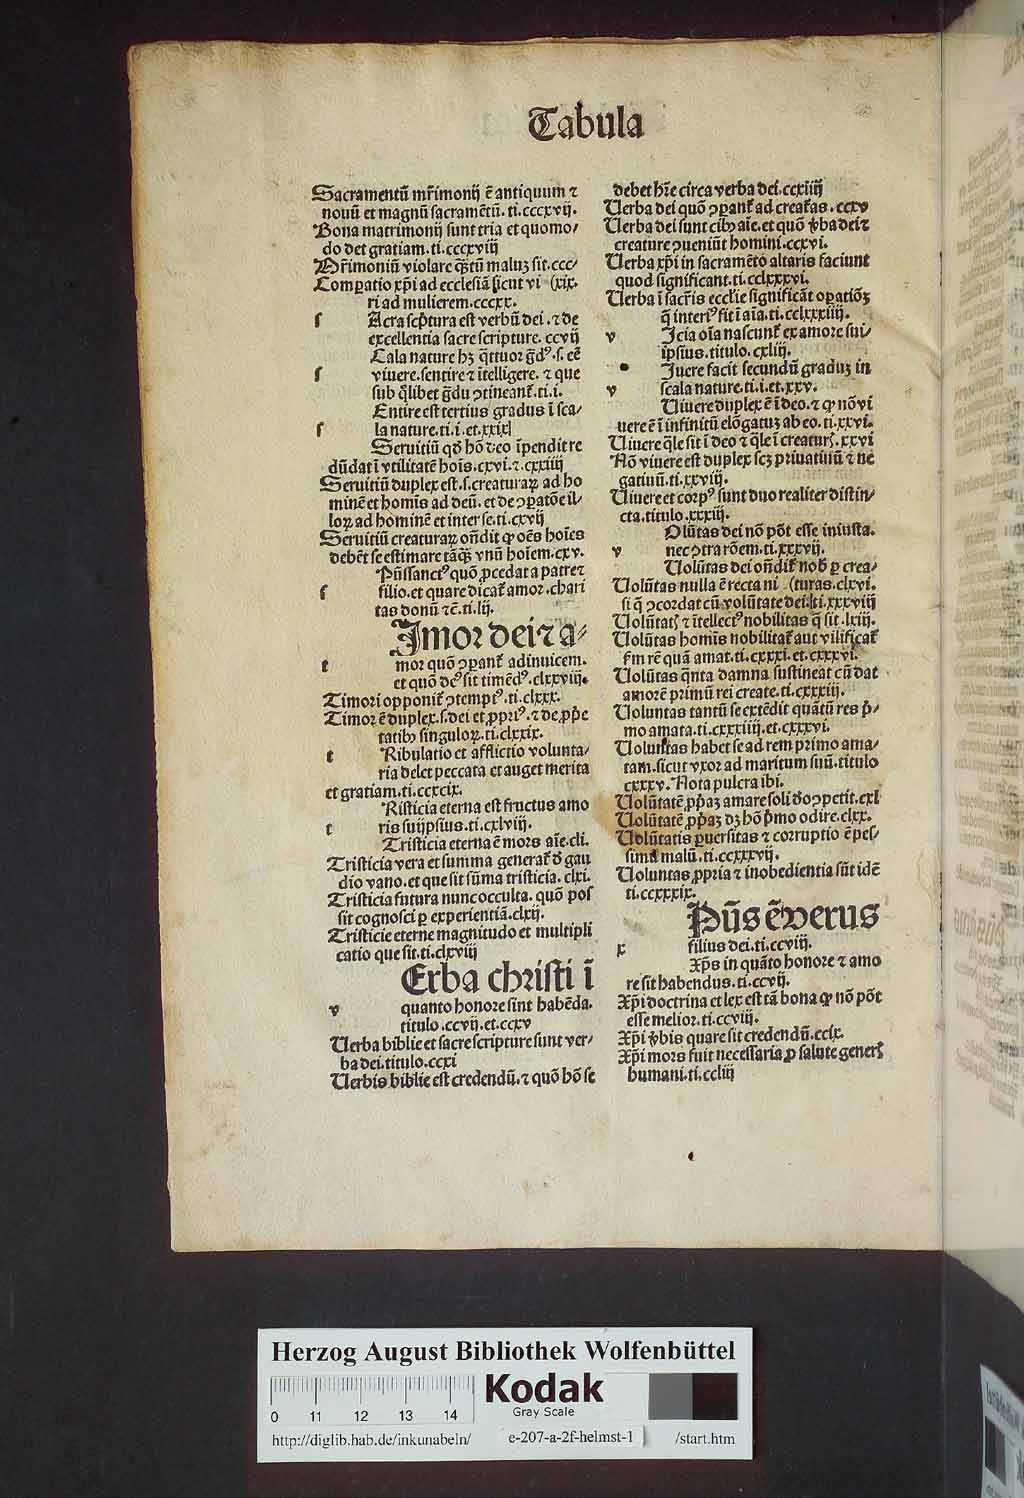 Tabula
Sacramentū mr̄imonij ē antiquum ⁊
nouū et magnū sacramētū. ti.cccxvij.
Bona matrimonij sunt tria et quomo/
do det gratiam.ti.cccxviij
Mr̄imoniū violare q̄ȝtū maluȝ sit.ccc/
Comꝑatio xp̄i ad ecclesiā sicut vi (xix.
ri ad mulierem.cccxx.
s Acra scp̄tura est verbū dei .⁊ de
excellentia sacre scripture. ccvij
Cala nature hȝ q̄ttuor ḡdꝰ.s.eē
s viuere.sentire ⁊ ītelligere. ⁊ que
sub q̄libet ḡdu ꝯtineant̄.ti.i.
Entire est tertius gradus ī sca/
s la nature.ti.i.et.xxix
Seruitiū qd̄ hō deo īpendit re
dūdat ī vtilitatē hoīs.cxvi.⁊.cxxiiij
Seruitiū duplex est.s.creaturaꝝ ad ho
minē et homīs ad deū. et de ꝯꝑatōe il/
loꝝ ad hominē et inter se.ti.cxvij
Seruitiū creaturaꝝ on̄dit ꝙ oēs hoīes
debēt se estimare tāq̄ȝ vnū hoīem.cxv.
Pūssanctꝰ quō ꝓcedat a patre ⁊
s filio.et quare dicat̄ amor .chari
tas donū ⁊c̄.ti.lij.
Imor dei ⁊ a/
t mor quō ꝯꝑant̄ adinuicem.
et quō deꝰ sit timēdꝰ.clxxviij.
Timori opponit̄ ꝯtemptꝰ.ti.clxxx.
Timor ē duplex.s.dei et ꝓpriꝰ.⁊ de ꝓp̄e
tatibꝫ singuloꝝ.ti.clxxix.
t Ribulatio et afflictio volunta/
ria delet peccata et auget merita
et gratiam.ti.ccxcix.
Risticia eterna est fructus amo
t ris suijpsius.ti.cxlviij.
Tristicia eterna ē mors aīe.cli.
Tristicia vera et summa generat̄ d̄ gau
dio vano.et que sit sūma tristicia. clxi.
Tristicia futura nunc occulta. quō pos
sit cognosci ꝑ experientiā.clxij.
Tristicie eterne magnitudo et multipli
catio que sit.ti.clxviij
Erba christi ī
v quanto honore sint habēda.
titulo .ccvij.et.ccxv
Uerba biblie et sacre scripture sunt ver/
ba dei.titulo.ccxi
Uerbis biblie est credendū.⁊ quō hō se
debet hr̄e circa verba dei.ccxiiij
Uerba dei quō ꝯꝑant̄ ad creat̄as .ccxv
Uerba dei sunt cibꝰ aīe.et quō v̄ba dei ⁊
creature ꝯueniūt homini.ccxvi.
Uerba xp̄i in sacramēto altaris faciunt
quod significant.ti.cclxxxvi.
Uerba ī sacr̄is eccl'ie significāt oꝑatiōȝ
q̄ interiꝰ fit ī aīa.ti.cclxxxiiij.
v Icia oīa nascunt̄ ex amore sui/
ipsius.titulo.cxliij.
Iuere facit secundū graduȝ in
v scala nature.ti.i.et.xxv.
Uiuere duplex ē ī deo.⁊ ꝙ nō vi
uere ē ī infinitū elōgatuȝ ab eo. ti.xxvi.
Uiuere q̄le sit ī deo ⁊ q̄le ī creaturꝭ.xxvi
Nō viuere est duplex scȝ priuatiuū ⁊ ne
gatiuū.ti.xxviij.
Uiuere et corpꝰ sunt duo realiter distin/
cta.titulo.xxxiij.
Olūtas dei nō pōt esse iniusta.
v nec ꝯtra rōem.ti.xxxvij.
Uolūtas dei on̄dit̄ nob̄ ꝑ crea/
Uolūtas nulla ē recta ni (turas.clxvi.
si q̄ ꝯcordat cū volūtate dei.ti.xxxviij
Uolūtatꝭ ⁊ ītellectꝰ nobilitas q̄ sit .lxiij.
Uolūtas homīs nobilitat̄ aut vilificat̄
s̄m rē quā amat.ti.cxxxi.et.cxxxvi.
Uolūtas q̄nta damna sustineat cū dat
amorē primū rei create.ti.cxxxiij.
Uoluntas tantū se extēdit quātū res p̄/
mo amata.ti.cxxxiiij.et.cxxxvi.
Uoluntas habet se ad rem primo ama/
tam.sicut vxor ad maritum suū.titulo
cxxxv. Nota pulcra ibi.
Uolūtatē ꝓp̄aȝ amare soli deo ꝯpetit.cxl
Uolūtatē ꝓp̄aȝ dȝ hō p̄mo odire.clxx.
Uolūtatis ꝑuersitas ⁊ corruptio ē pes/
simū malū.ti.ccxxxvij.
Uoluntas ꝓpria ⁊ inobedientia sūt idē
ti.ccxxxix.
Pūs ē verus
x filius dei.ti.ccviij.
Xp̄s in quāto honore ⁊ amo
re sit habendus.ti.ccvij.
Xp̄i doctrina et lex est tā bona ꝙ nō pōt
esse melior.ti.ccviij.
Xp̄i v̄bis quare sit credendū.ccix.
Xp̄i mors fuit necessaria ꝓ salute generꝭ
humani.ti.ccliij
Herzog August Bibliothek Wolfenbüttel
Kodak
Gray Scale
0 11 12 13 14
http://diglib.hab.de/inkunabeln/ e-207-a-2f-helmst-1 /start.htm